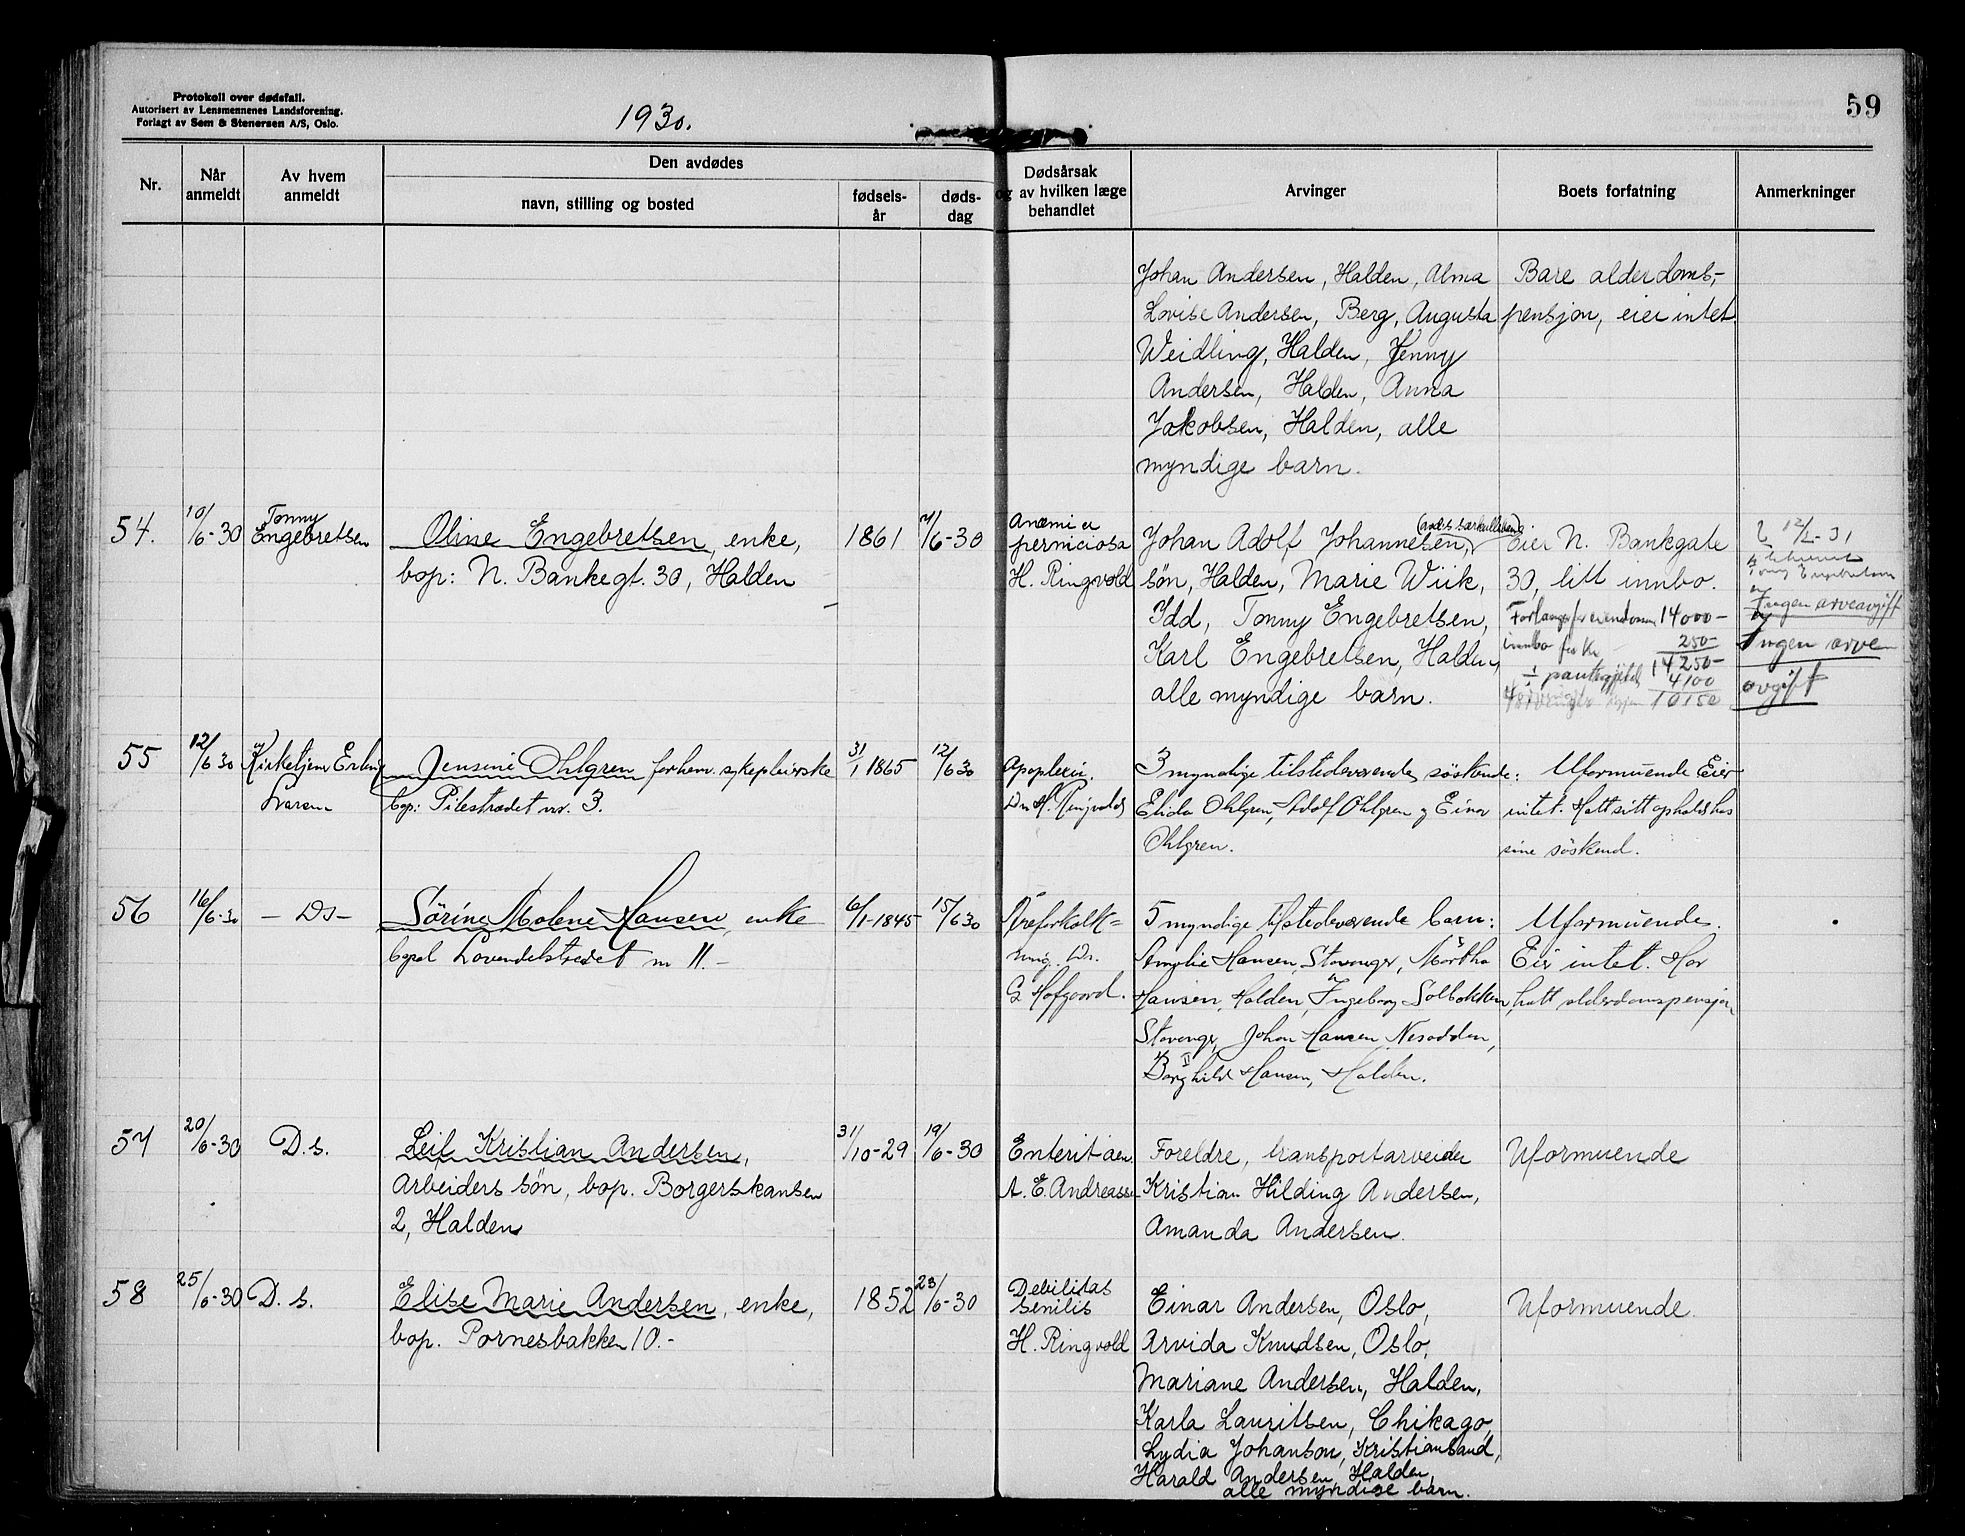 Protokoll over dødsfall.
Autorisert av Lensmennenes Landsforening.
Forlagt av Sem & Stenersen A/S, Oslo.
1930.
59
Nr.
Når anmeldt
Av hvem anmeldt
Den avdødes
navn, stilling og bosted
fødsels-år
døds-dag
Dødsårsak
og av hvilken læge
behandlet
Arvinger
Boets forfatning
Anmerkninger
Johan Andersen, Halden, Alma
Lovise Andersen, Berg, Augusta
Weidling, Halden, Jenny
Andersen, Halden, Anna
Jakobsen, Halden, alle
myndige barn.
Bare alderdoms-
pensjon, eier intet.
54.
10/6-30
Tonny
Engebretsen
Oline Engebretsen, enke,
bop: N. Bankegt. 30, Halden
1861
7/6-30
Anæmi
perniciosa
H. Ringvold
Johan Adolf Johannesen,
søn, Halden, Marie Wiik,
Idd, Tonny Engebretsen,
Karl Engebretsen, Halden,
alle myndige barn.
Eier N. Bankgate
30, litt innbo.
14000-
innbo for kr. 250-
14250-
÷ pantegjeld 4100
10150
12/2-31
Ingen arveavgift
Ingen arve
avgift
55
12/6 30
Kirketjener Erling
Jensine Ohlgren forhenv. sykepleierske
bop: Pilestrædet nr. 3.
31/1 1865
12/6 30
Apoplexi.
Dr H. Ringvold
3 myndige tilstedeværende søskende:
Elida Ohlgren, Adolf Ohlgren og Einar
Ohlgren.
Uformuende Eier
intet. Hatt sitt ophold hos
sine søskend.
56
16/6-30
- Ds -
Sørine Molene Hansen, enke
bopel Lovendelstredet nr 11.-
6/1-1845
15/6 30
Åreforkalk=
ning. Dr.
G Hofgaard.
5 myndige tilstedeværende barn:
Amalie Hansen, Stavanger, Märtha
Hansen, Halden, Ingeborg Solbakken,
Stavanger, Johan Hansen Nesodden,
Borghild Hansen, Halden.
Uformuende.
Eier intet. Har
hatt alderdomspensjon
57
20/6-30
D.s.
Leif Kristian Andersen,
Arbeiders søn, bop. Borgerskansen
2, Halden
31/10-29
19/6-30
A. E. Andreassen
Foreldre, transportarbeider
Kristian Hilding Andersen,
Amanda Andersen.
Uformuende
58
25/6-30
D.s.
Elise Marie Andersen, enke,
bop. Pornesbakken 10.-
1852
23/6-30
Debilitas
senilis
H. Ringvold
Einar Andersen, Oslo,
Arvida Knudsen, Oslo,
Mariane Andersen, Halden,
Karla Lauritsen, Chikago,
Lydia Johanson, Kristiansand,
Harald Andersen, Halden,
alle myndige barn.
Uformuende.